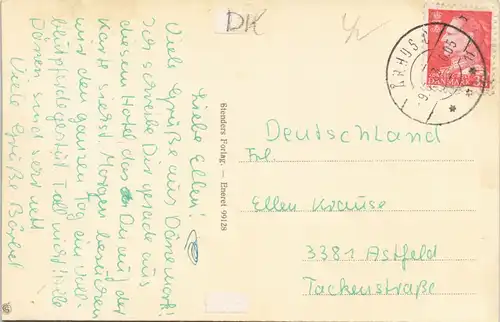 DK
Liebe Ellen!
Viele Grüße aus Dänemark!
Ich schreibe Dir gerade aus
diesem Hotel, das Du auf der
Karte siehst. Morgen besichtigen
wir den ganzen Tag ein Voll-
blutpferdegestüt. Toll nicht! Alle
Dänen sind sehr nett
Viele Grüße Bärbel
Stenders Forlag. — Eneret 99128
ÅRHUS
Deutschland
Frl.
Ellen Krause
3381 Astfeld
Tackenstraße